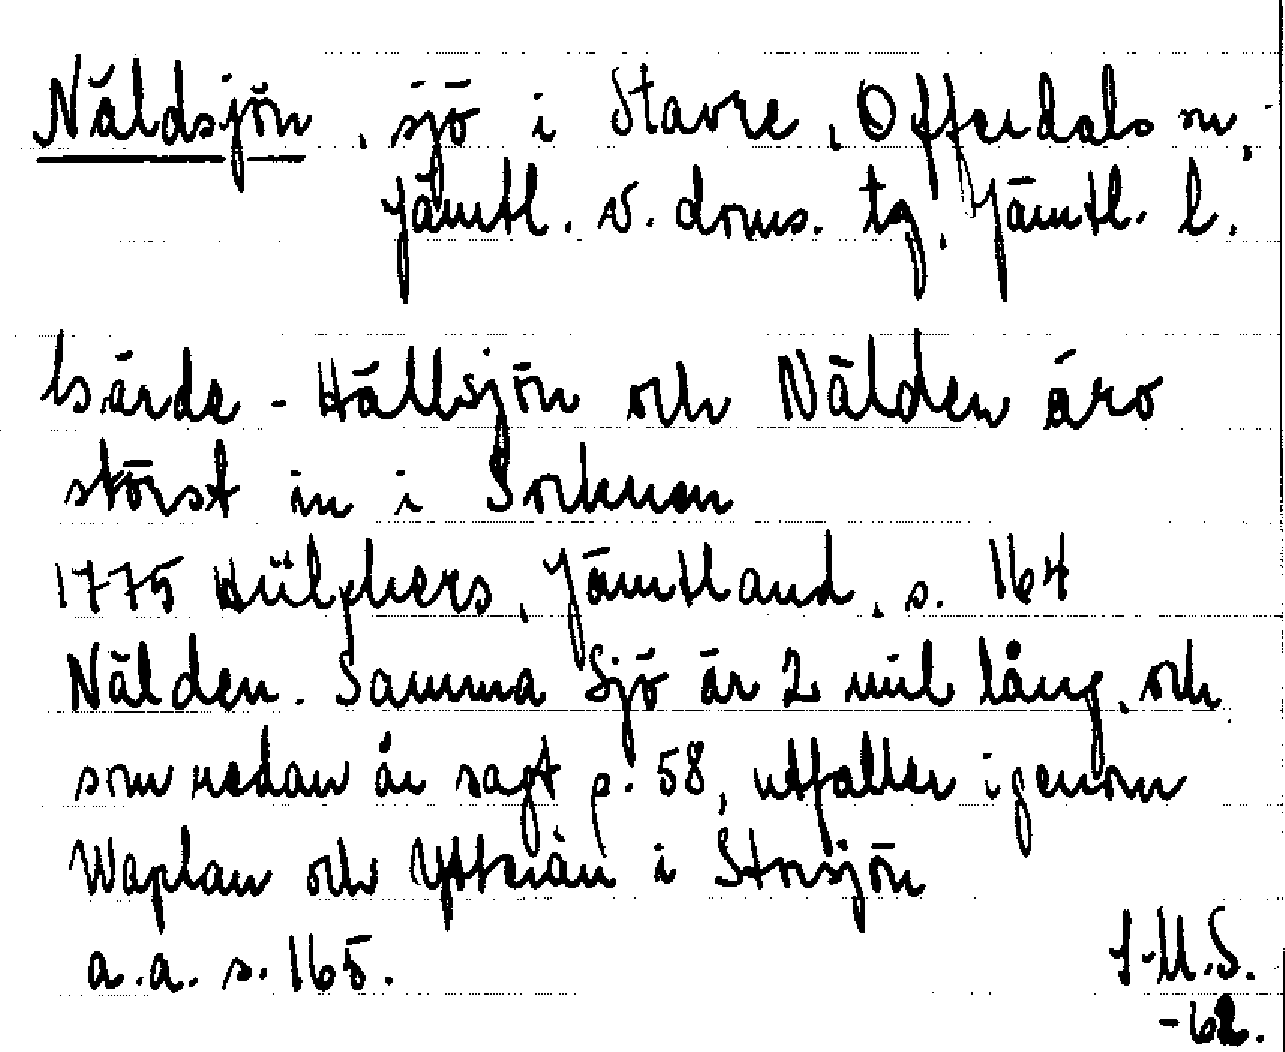 Näldsjön, sjö i Stavre, Offerdals sn,
Jämtl. v. doms. tg, Jämtl. l.
Gärde-Hällsjön och Nälden äro
störst in i Soknen
1775 Hülphers, Jämtland, s. 164
Nälden. Samma Sjö är 2 mil lång, och
som redan är sagt p. 58, utfaller igenom
Waplan och Ytterån i Storsjön
a.a. s. 165.
-62.